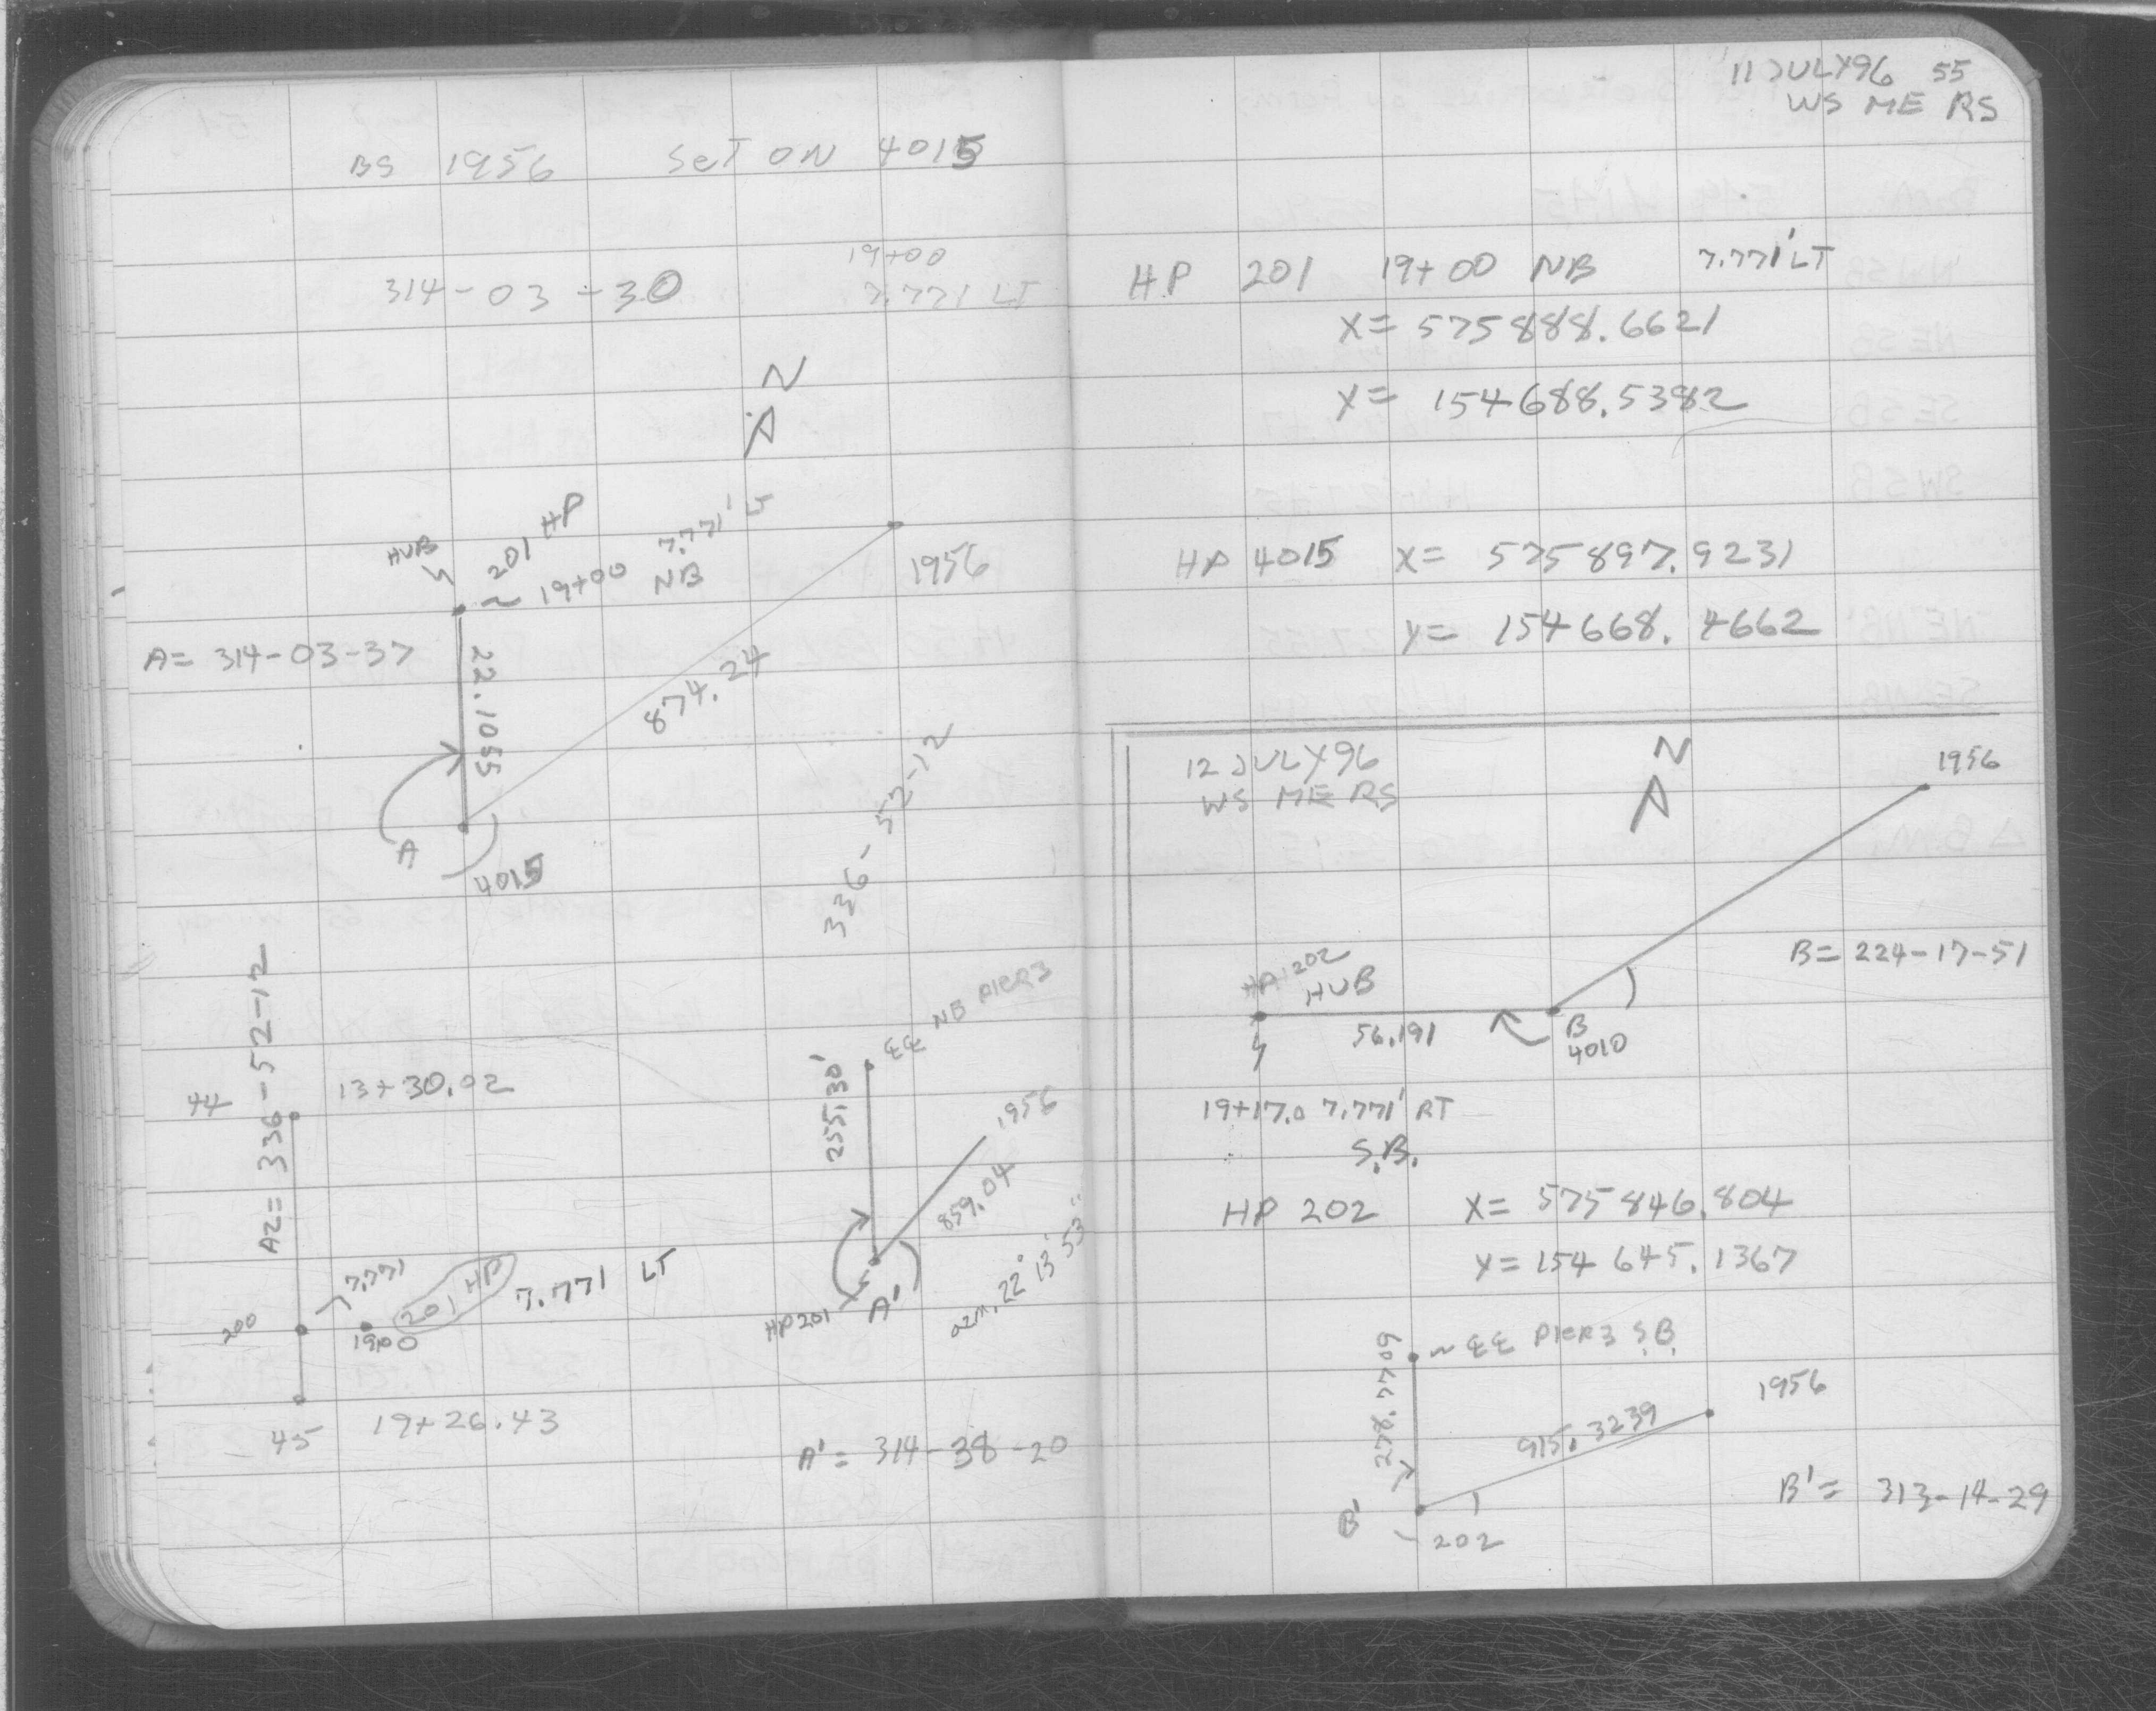 BS 1956 SET ON 4015
19+00
314-03-30 7.771 LT
N
HUB 201 HP 7.771' LT
19+00 NB
1956
A= 314-03-37
22.1055
874.24
A
4015
336-52-12
AZ= 336-52-12
44 13+30.02
200
7.771
1900
201 HP
7.771 LT
45 19+26.43
NB PIER3
255.30'
1956
859.04
azm. 22° 13' 53"
HP201 A'
A' = 314-38-20
11 JULY96 55
WS ME RS
HP 201 19+00 NB 7.771' LT
X= 575888.6621
Y= 154688.5382
HP 4015 X= 575897.9231
Y= 154668.4662
12 JULY96
WS ME RS
N
1956
B= 224-17-51
HP 202
HUB
56.191
B
4010
19+17.0 7.771' RT
S.B.
HP 202 X= 575846.804
Y= 154645.1367
PIER3 S.B.
278.7709
1956
915.3239
B' = 313-14-29
B'
202